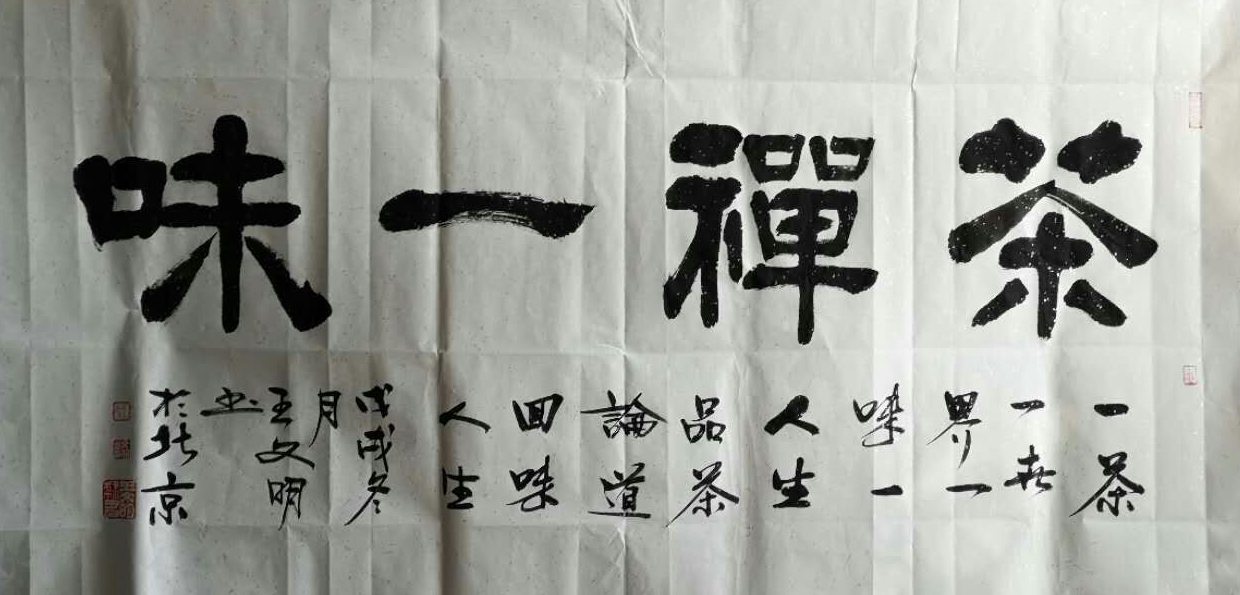 茶禪一味
一茶
一世
界一
味一
人生
品茶
論道
回味
人生
戊戌冬
月
王文明
书
於北京